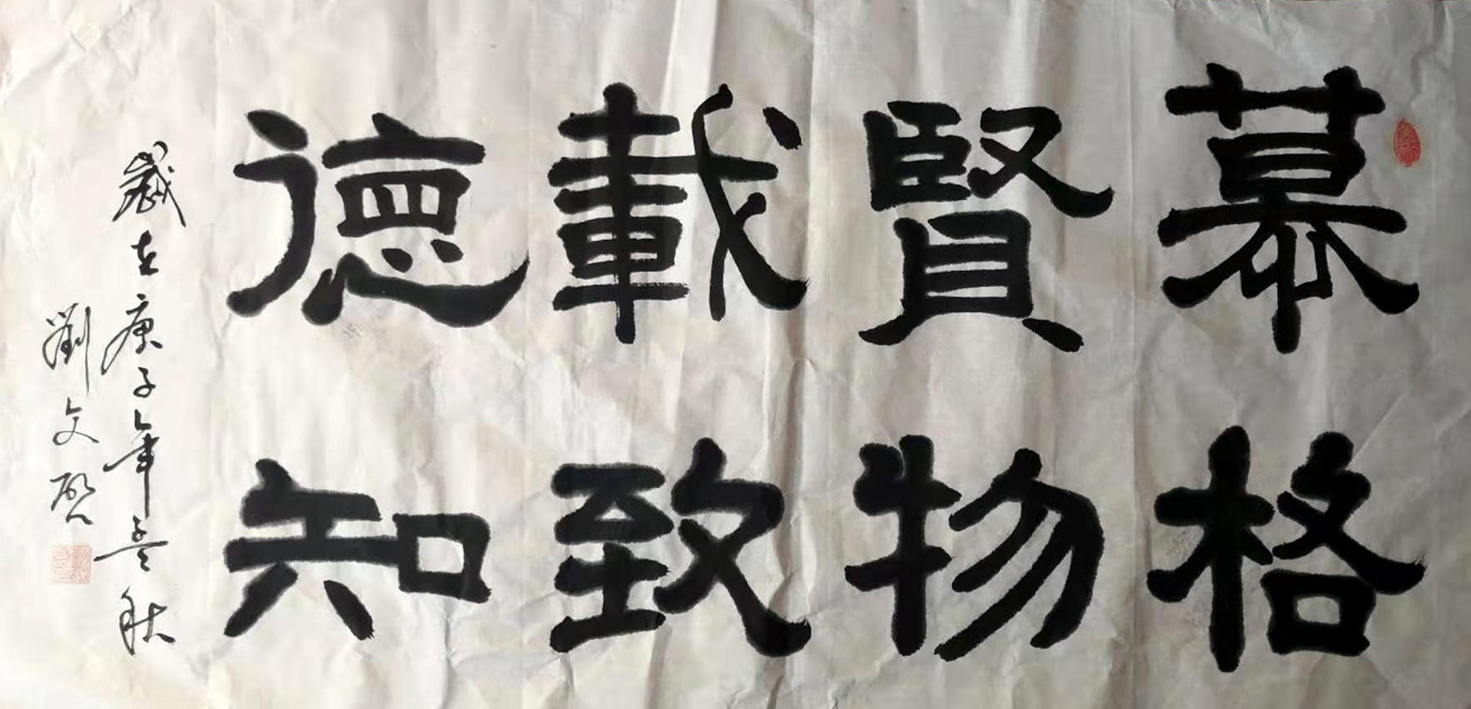 慕賢載德
格物致知
歲在庚子年孟秋
劉文